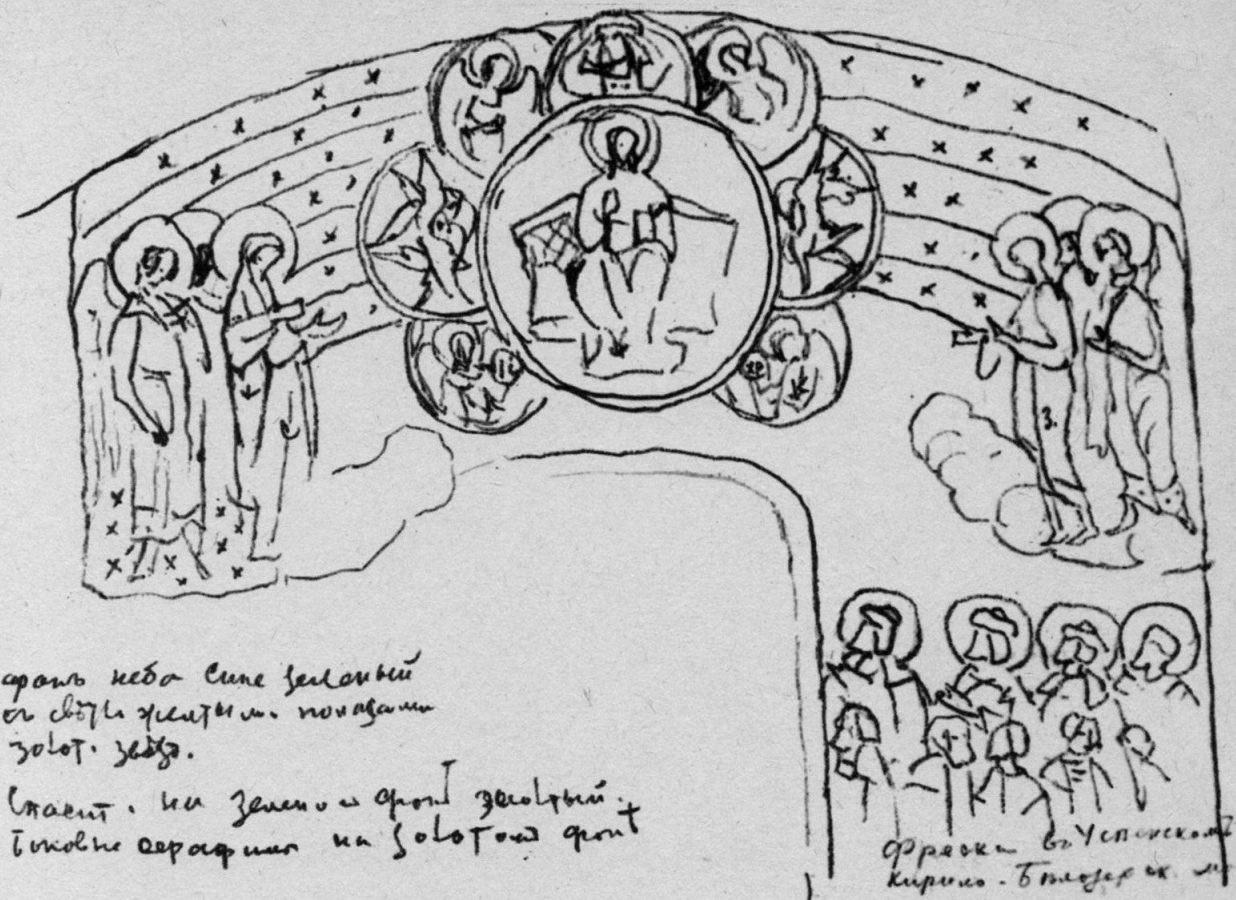 IC
ХР
З.
фонъ неба сине зеленый
съ свѣтло желтыми полосами
золот. звѣзд.
Спасит. на зеленом фонѣ
серафимы на золотом фонѣ
Фреска въ Успенском
Кирило-Бѣлозерск. м